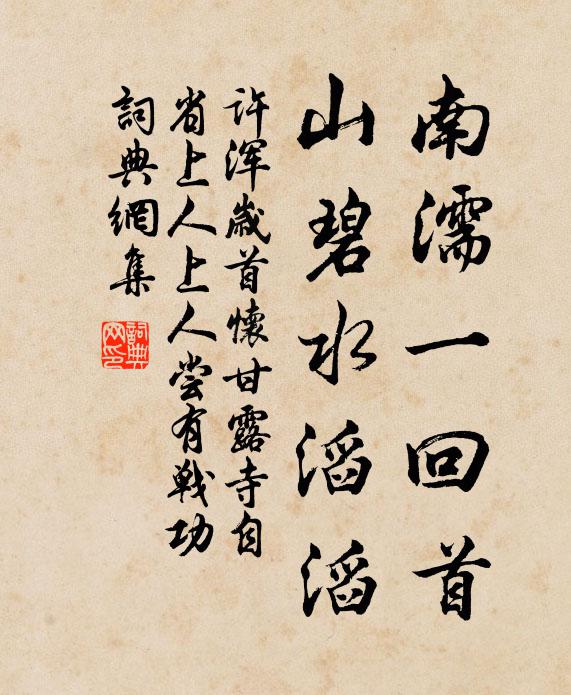 南濡一回首
山碧水滔滔
许浑歲首懷甘露寺自
省上人上人尝有戰功
詞典網集
詞典网印